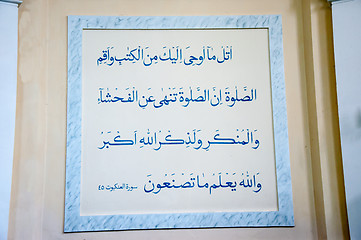 اُتْلُ مَآ أُوحِىَ إِلَيْكَ مِنَ الْكِتٰبِ وَأَقِمِ
الصَّلٰوةَ إِنَّ الصَّلٰوةَ تَنْهٰى عَنِ الْفَحْشَآءِ
وَالْمُنْكَرِ وَلَذِكْرُ اللهِ أَكْبَرُ
وَاللهُ يَعْلَمُ مَا تَصْنَعُونَ سورة العنكبوت ٤٥